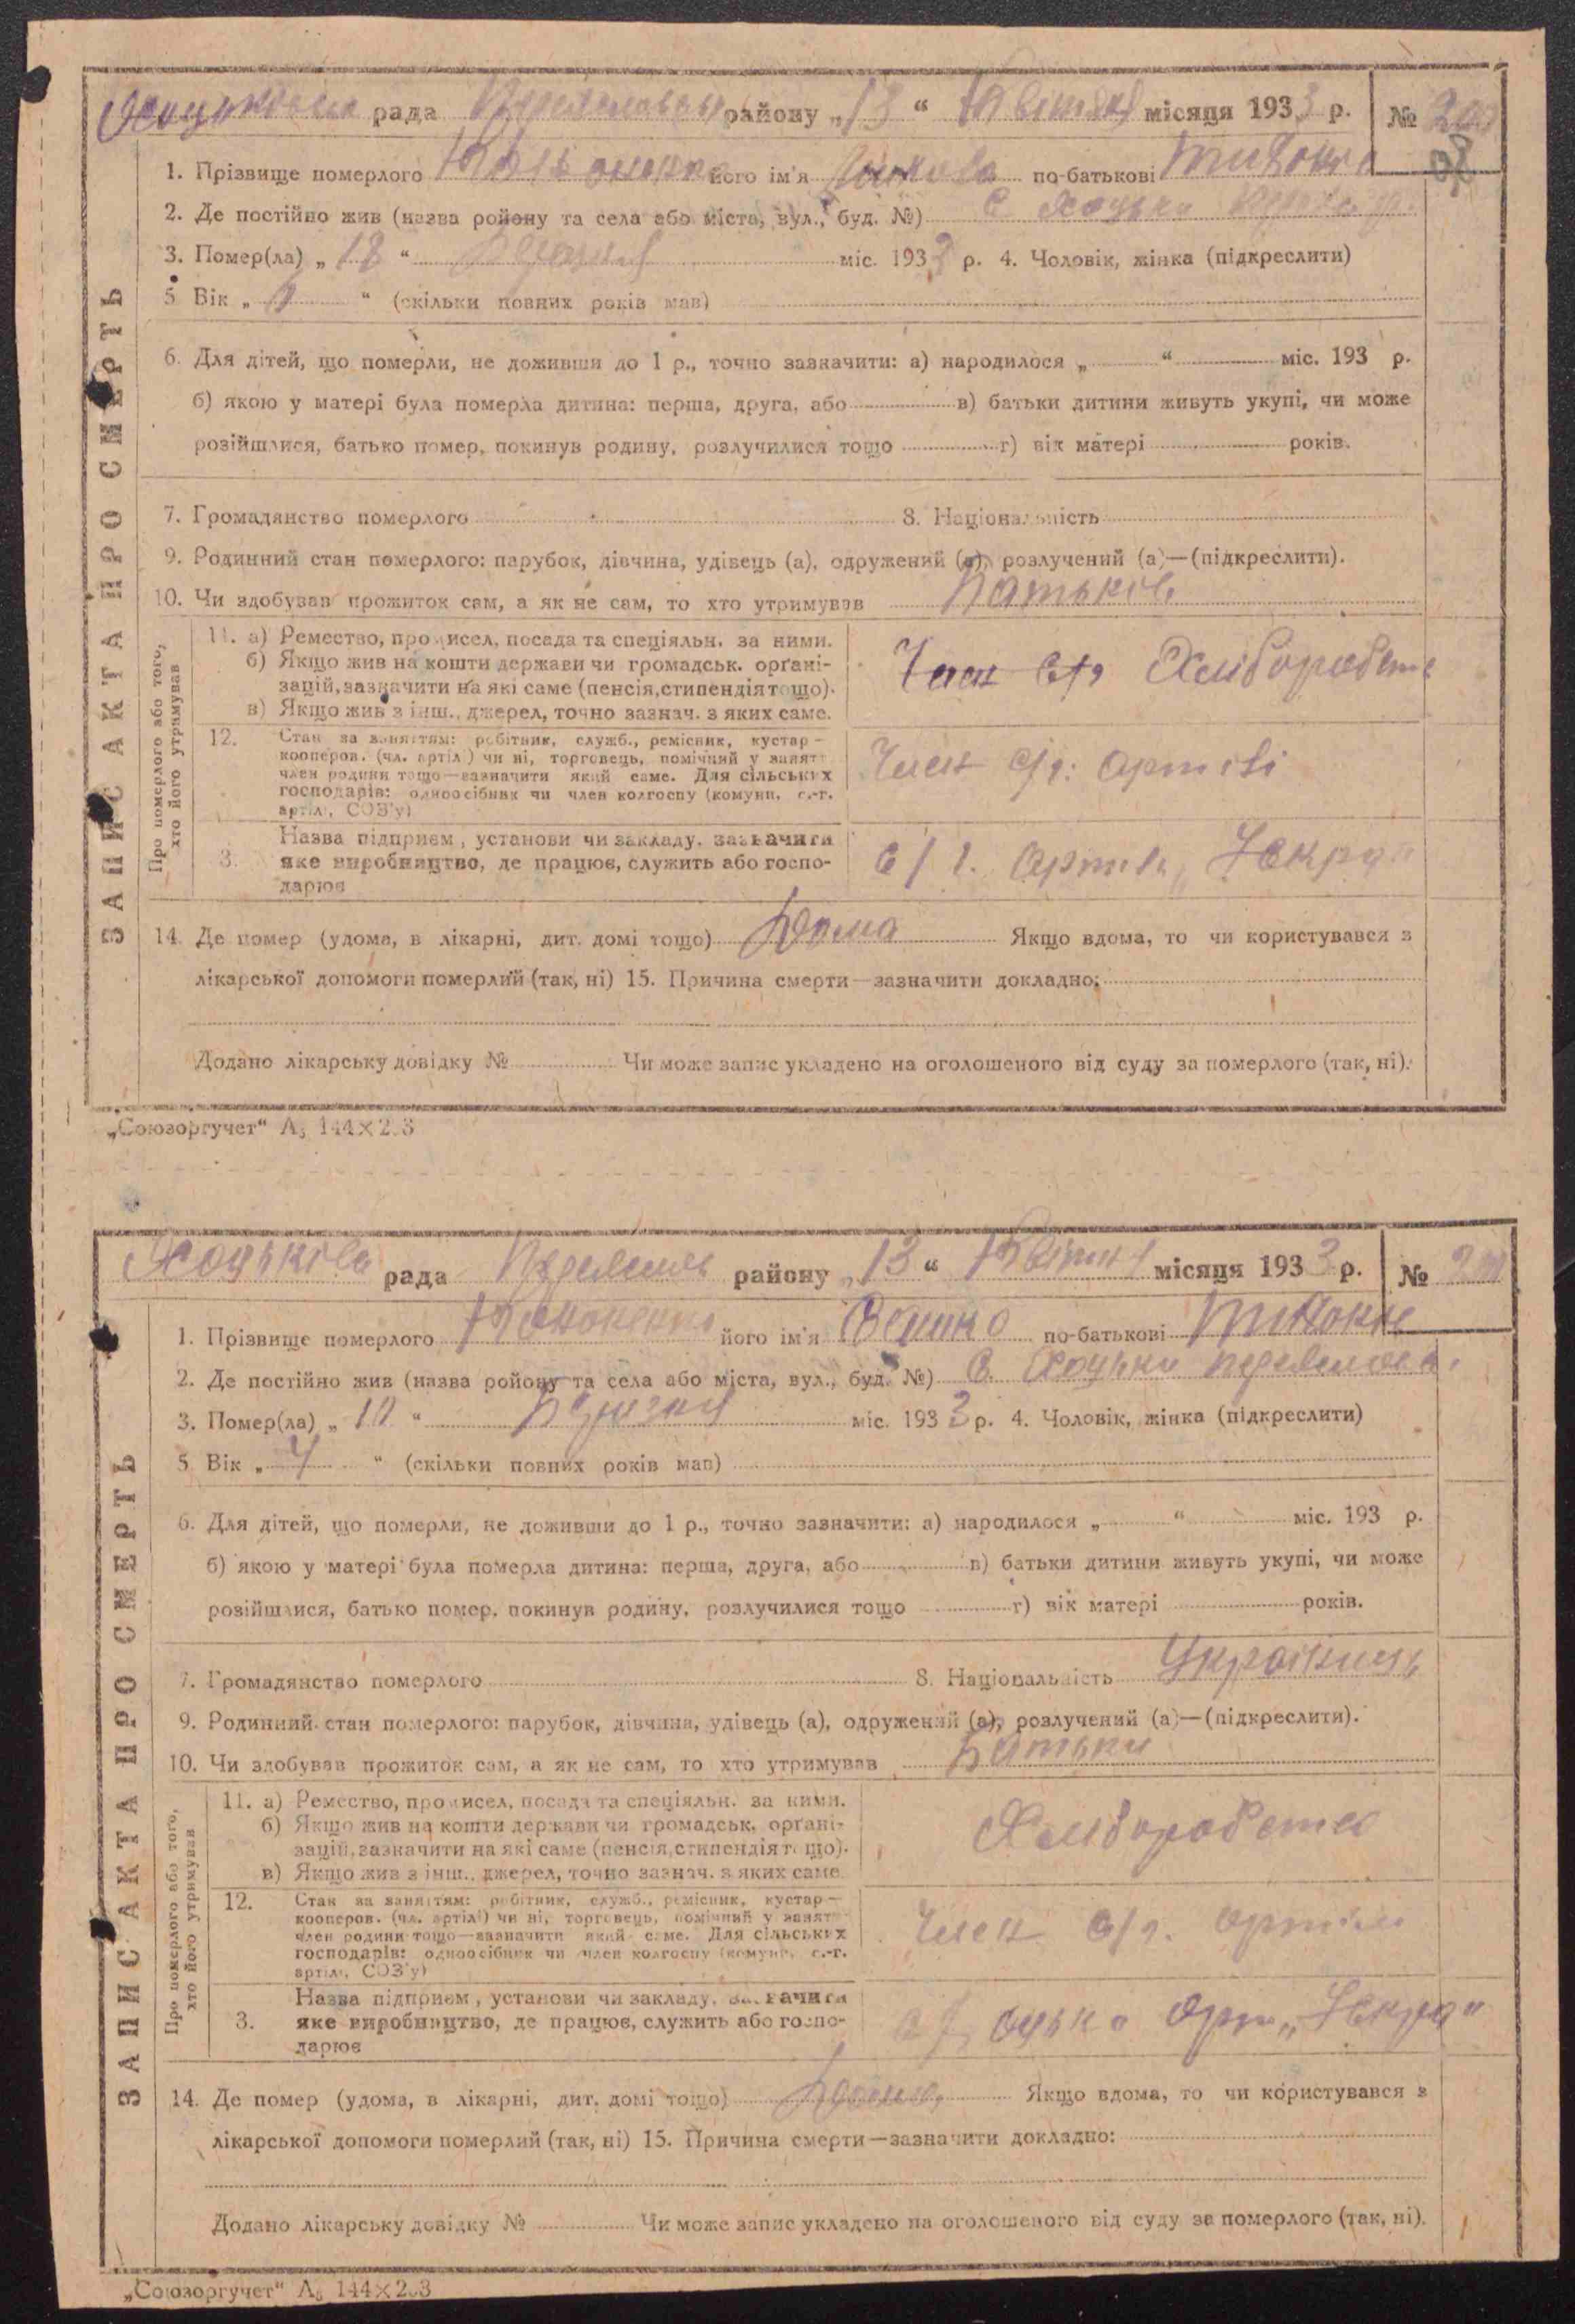 рада району „13“ Квітня місяця 1933 р. №
ЗАПИС АКТА ПРО СМЕРТЬ
1. Прізвище померлого його ім'я по-батькові
2. Де постійно жив (назва ройону та села або міста, вул., буд. №) с Хоцьки
3. Помер(ла) „18“ міс. 1933 р. 4. Чоловік, жінка (підкреслити)
5 Вік „ “ (скільки повних років мав)
6. Для дітей, що померли, не доживши до 1 р., точно зазначити: а) народилося „ “ міс. 193 р.
б) якою у матері була померла дитина: перша, друга, або в) батьки дитини живуть укупі, чи може
розійшлися, батько помер, покинув родину, розлучилися тощо г) вік матері років.
7. Громадянство померлого 8. Національність
9. Родинний стан померлого: парубок, дівчина, удівець (а), одружений (а), розлучений (а)—(підкреслити).
10. Чи здобував прожиток сам, а як не сам, то хто утримував
Про померлого або того, хто його утримував
11. а) Ремество, промисел, посада та спеціяльн. за ними.
б) Якщо жив на кошти держави чи громадськ. орґані-
зацій, зазначити на які саме (пенсія, стипендія тощо).
в) Якщо жив з інш., джерел, точно зазнач. з яких саме.
12. Стан за заняттям: робітник, служб., ремісник, кустар—
кооперов. (чл. артілі) чи ні, торговець, помічний у занят
член родини тощо—зазначити який саме. Для сільських
господарів: одноосібник чи член колгоспу (комуни, с.-г.
артілі, СОЗ'у)
Член с/г. артілі
3. Назва підприєм, установи чи закладу. зазначити
яке виробництво, де працює, служить або госпо-
дарює
с/г. Артіль „Іскра“
14. Де помер (удома, в лікарні, дит. домі тощо) Дома Якщо вдома, то чи користувався з
лікарської допомоги померлий (так, ні) 15. Причина смерти—зазначити докладно:
Додано лікарську довідку № Чи може запис укладено на оголошеного від суду за померлого (так, ні).
„Союзоргучет“ А₅ 144×203
рада району „13“ Квітня місяця 1933 р. №
ЗАПИС АКТА ПРО СМЕРТЬ
1. Прізвище померлого його ім'я по-батькові
2. Де постійно жив (назва ройону та села або міста, вул., буд. №) С. Хоцьки
3. Помер(ла) „ “ міс. 1933 р. 4. Чоловік, жінка (підкреслити)
5 Вік „4“ (скільки повних років мав)
6. Для дітей, що померли, не доживши до 1 р., точно зазначити: а) народилося „ “ міс. 193 р.
б) якою у матері була померла дитина: перша, друга, або в) батьки дитини живуть укупі, чи може
розійшлися, батько помер, покинув родину, розлучилися тощо г) вік матері років.
7. Громадянство померлого 8. Національність Українець
9. Родинний стан померлого: парубок, дівчина, удівець (а), одружений (а), розлучений (а)—(підкреслити).
10. Чи здобував прожиток сам, а як не сам, то хто утримував Батьки
Про померлого або того, хто його утримував
11. а) Ремество, промисел, посада та спеціяльн. за ними.
б) Якщо жив на кошти держави чи громадськ. орґані-
зацій, зазначити на які саме (пенсія, стипендія тощо).
в) Якщо жив з інш., джерел, точно зазнач. з яких саме.
12. Стан за заняттям: робітник, служб., ремісник, кустар—
кооперов. (чл. артілі) чи ні, торговець, помічний у занят
член родини тощо—зазначити який саме. Для сільських
господарів: одноосібник чи член колгоспу (комуни, с.-г.
артілі, СОЗ'у)
Член с/г.
3. Назва підприєм, установи чи закладу. зазначити
яке виробництво, де працює, служить або госпо-
дарює
„Іскра“
14. Де помер (удома, в лікарні, дит. домі тощо) Якщо вдома, то чи користувався з
лікарської допомоги померлий (так, ні) 15. Причина смерти—зазначити докладно:
Додано лікарську довідку № Чи може запис укладено на оголошеного від суду за померлого (так, ні).
„Союзоргучет“ А₅ 144×203